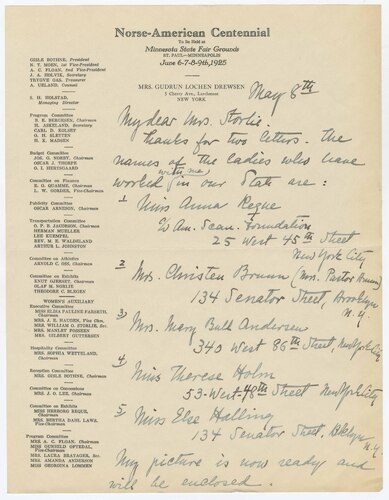 Norse-American Centennial
To be Held at
Minnesota State Fair Grounds
ST. PAUL—MINNEAPOLIS
June 6-7-8-9th, 1925
GISLE BOTHNE, President
N. T. MOEN, 1st Vice-President
A. C. FLOAN, 2nd Vice-President
J. A. HOLVIK, Secretary
TRYGVE OAS, Treasurer
A. UELAND, Counsel
S. H. HOLSTAD,
Managing Director
Program Committee
B. E. BERGESEN, Chairman
H. ASKELAND, Secretary
CARL D. KOLSET
O. H. SLETTEN
H. K. MADSEN
Budget Committee
JOS. G. NORBY, Chairman
OSCAR J. THORPE
G. I. HERTSGAARD
Committee on Finance
E. G. QUAMME, Chairman
L. W. GORDER, Vice-Chairman
Publicity Committee
OSCAR ARNESON, Chairman
Transportation Committee
O. P. B. JACOBSON, Chairman
HERMAN MUELLER
LEE KUEMPEL
REV. M. E. WALDELAND
ARTHUR L. JOHNSTON
Committee on Athletics
ARNOLD C. OSS, Chairman
Committee on Exhibits
KNUT GJERSET, Chairman
OLAF M. NORLIE
THEODORE C. BLEGEN
WOMEN'S AUXILIARY
Executive Committee
MISS ELISA PAULINE FARSETH,
Chairman
MRS. J. E. HAUGEN, Vice Chm.
MRS. WILLIAM O. STORLIE, Sec.
MRS. MANLEY FOSSEEN
MRS. GILBERT GUTTERSEN
Hospitality Committee
MRS. SOPHIA WETTELAND,
Chairman
Reception Committee
MRS. GISLE BOTHNE, Chairman
Committee on Concessions
MRS. J. O. LEE, Chairman
Committee on Exhibits
MISS HERBORG REQUE,
Chairman
MRS. BERTHA DAHL LAWS,
Vice-Chairman
Program Committee
MRS. A. C. FLOAN, Chairman
MISS GUNHILD OFTEDAL,
Vice-Chairman
MRS. LAURA BRATAGER, Sec.
MRS. AMANDA ANDERSON
MISS GEORGINA LOMMEN
MRS. GUDRUN LOCHEN DREWSEN
5 Cherry Ave., Larchmont
NEW YORK
May 8th
My dear Mrs. Storlie:
Thanks for two letters. The
names of the ladies who have
worked with me in our State are:
1 Miss Anna Reque
c/o Am. Scan. Foundation
25 West 45th Street
New York City
2 Mrs. Christen Bruun (Mrs. Pastor Bruun)
134 Senator Street, Brooklyn
N.Y.
3) Mrs. Mary Bull Andersen
340 West 86th Street, New York City
4 Miss Therese Holm
53-West-48th Street New York City
5 Miss Else Halling
134 Senator Street, Bklyn
N.Y.
My picture is now ready and
will be enclosed.